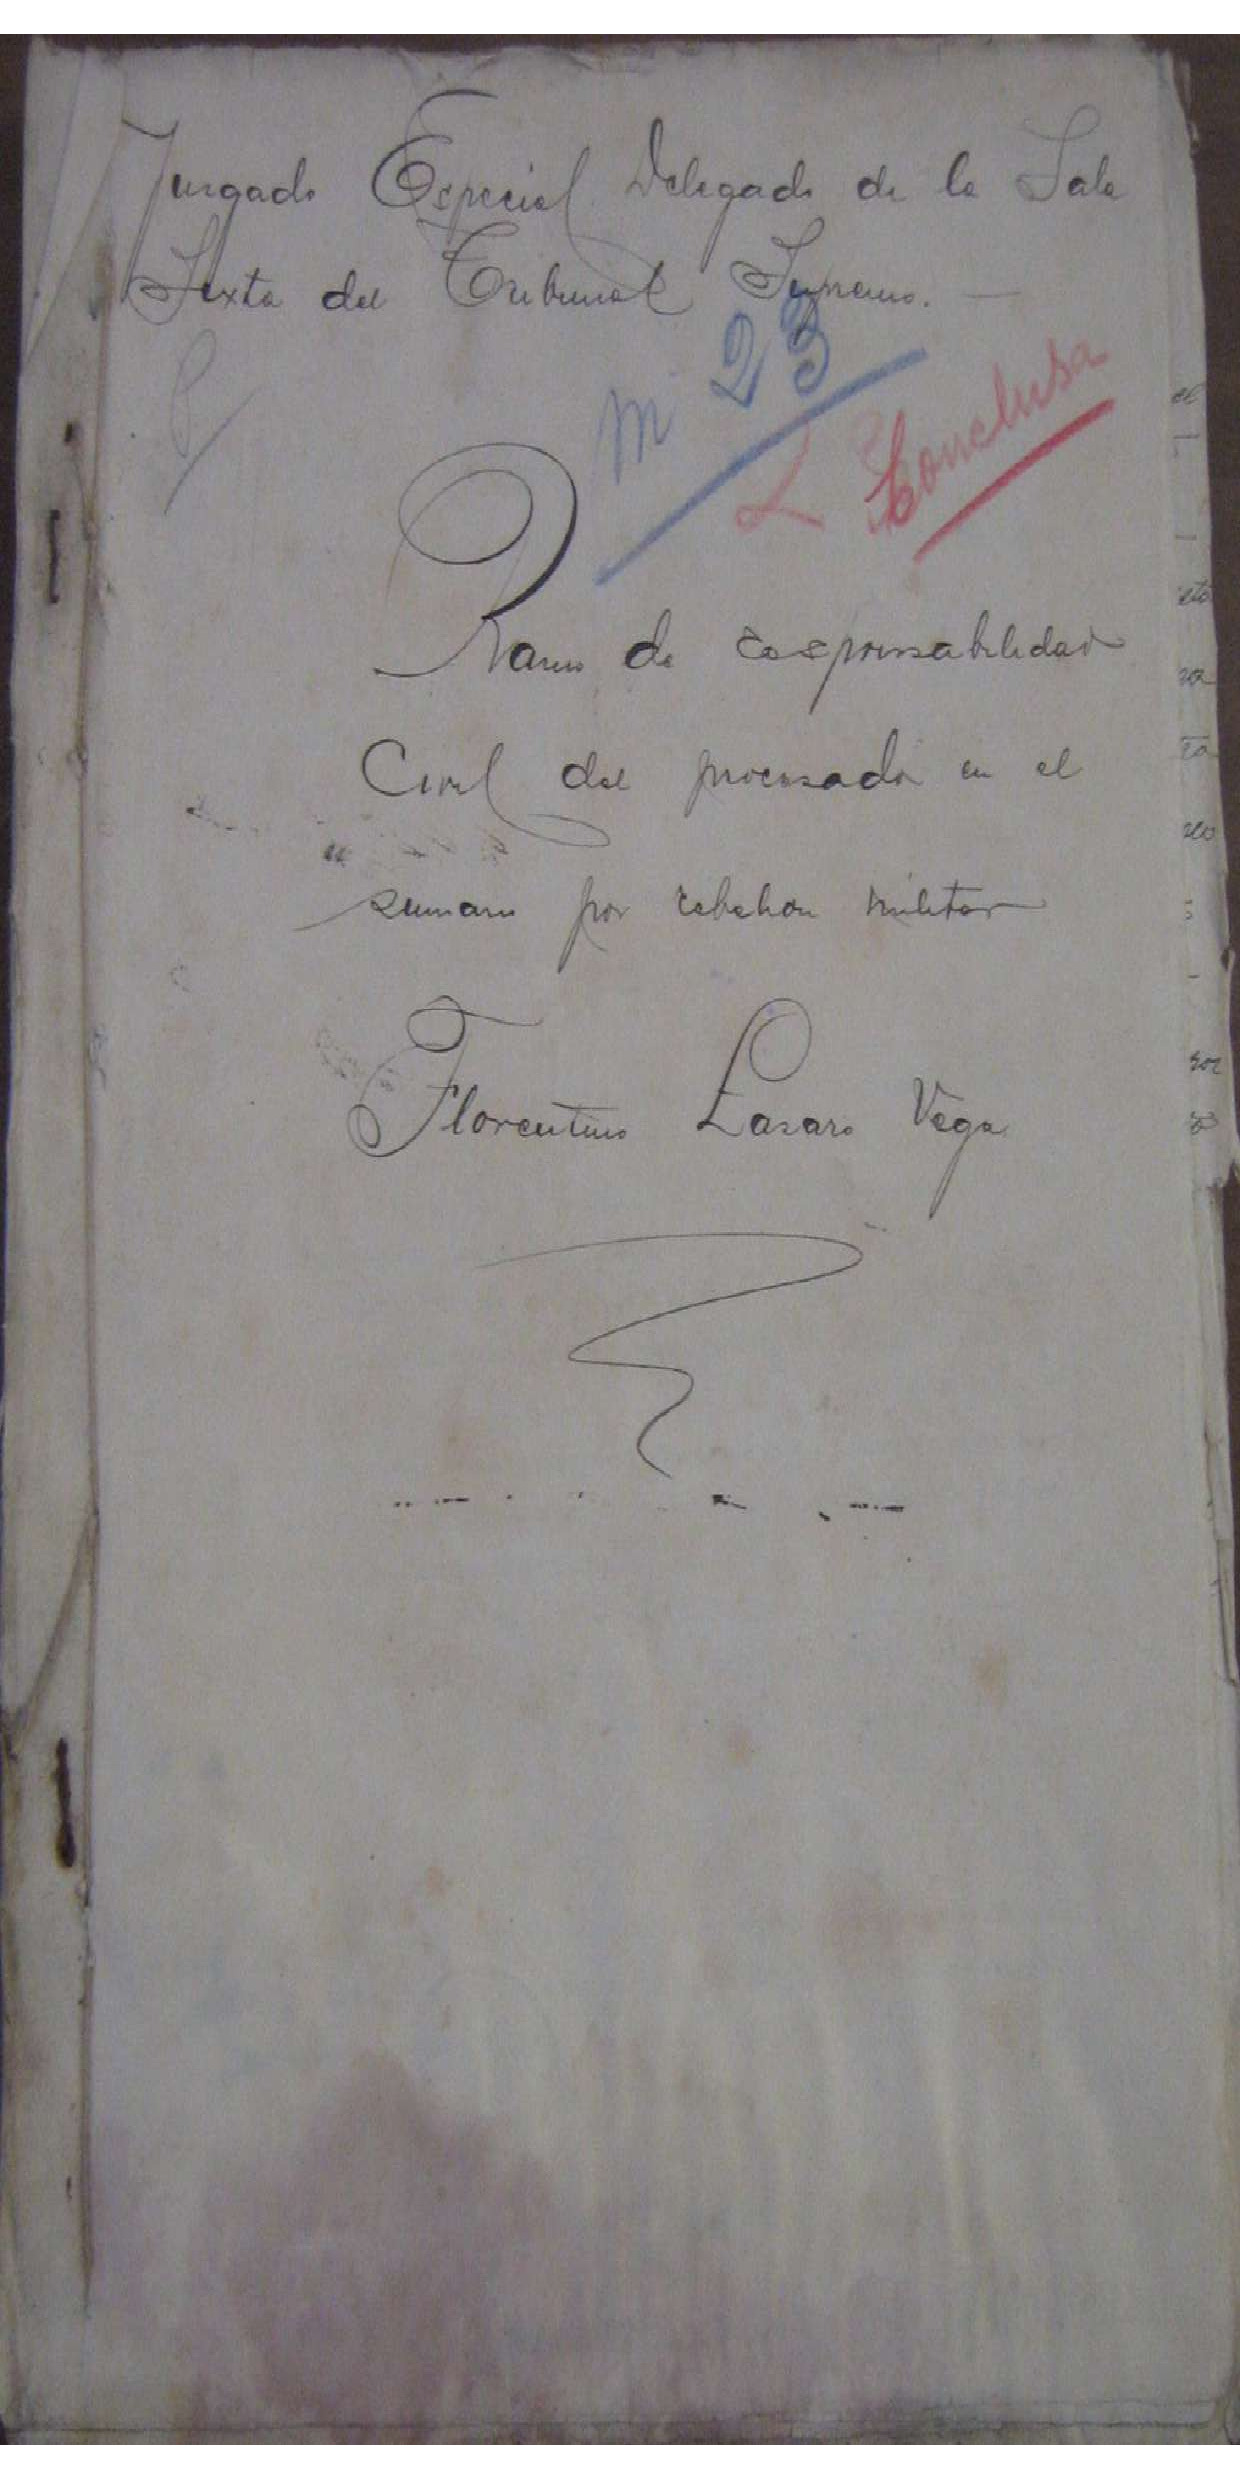 Juzgado Especial Delegado de la Sala
Sexta del Tribunal Supremo. —
M 23
L Conclusa
Ramo de responsabilidad
Civil del procesado en el
sumario por rebelion militar
Florentino Lasaro Vega